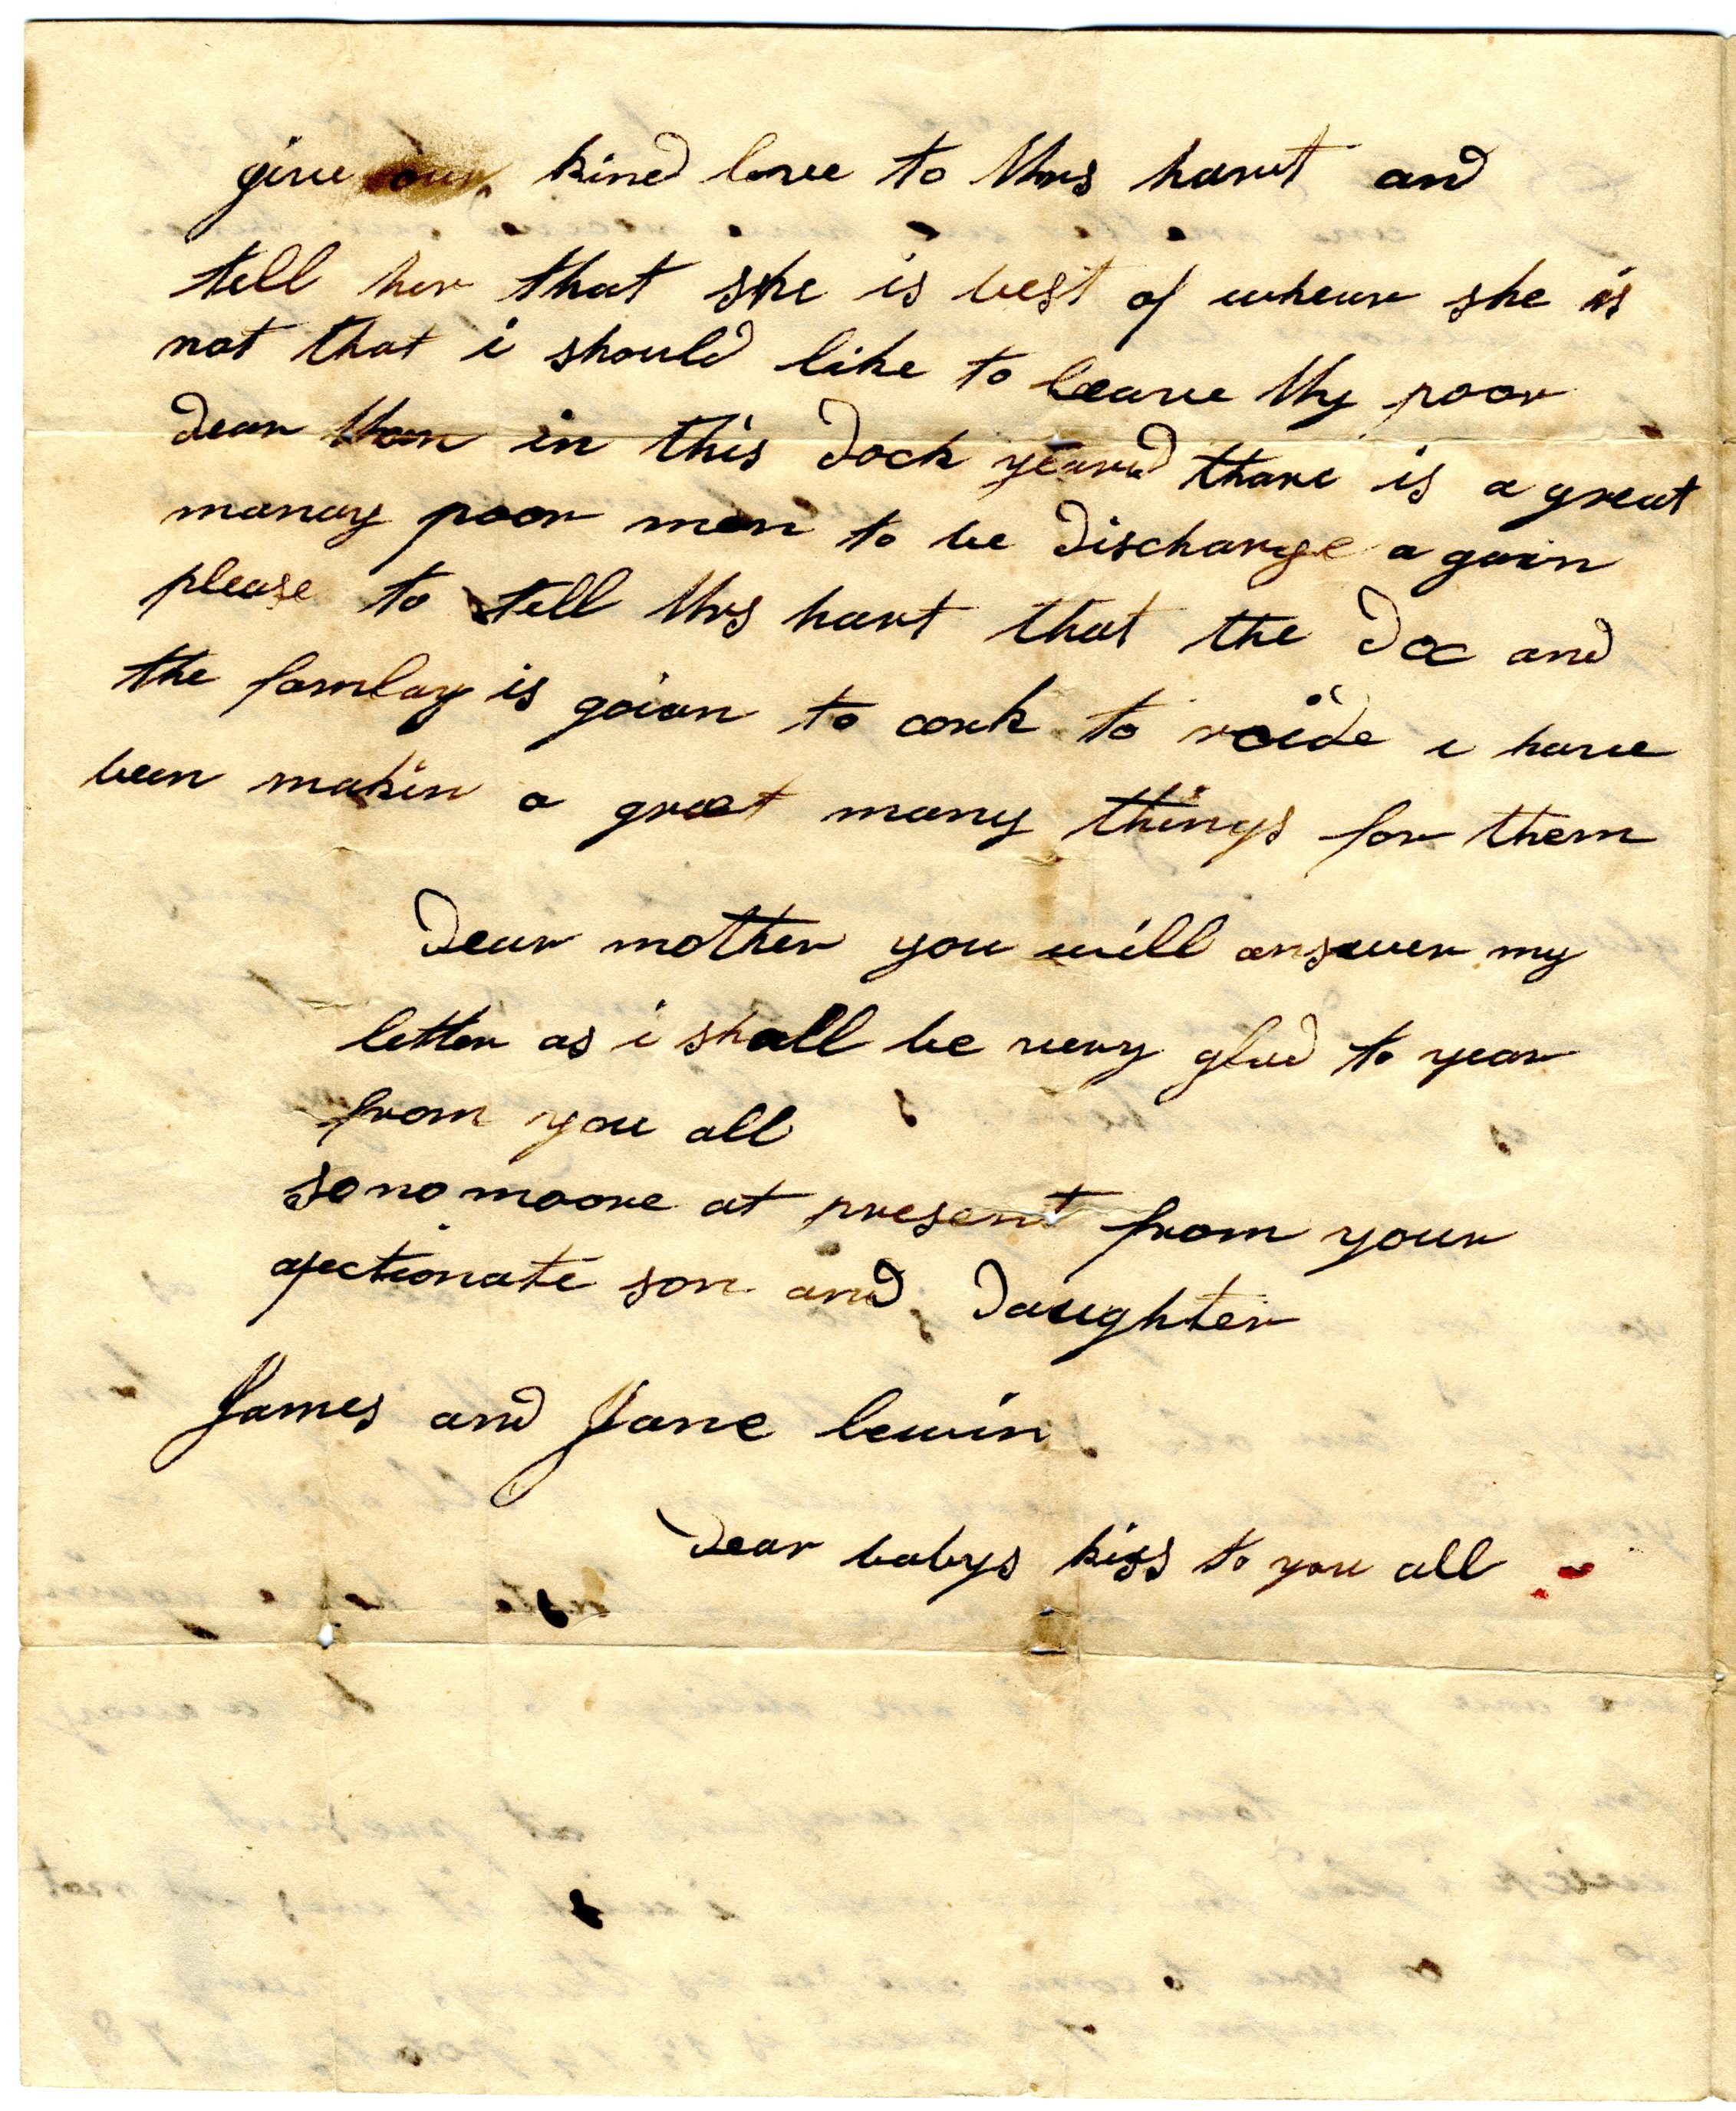 give our kined love to Mrs hart and
tell her that she is best of wheur she is
not that i should like to leave My poor
dear Man in this dock yeard thare is a great
manay poor men to be discharge a gain
please to tell Mrs hart that the Doc and
the famlay is goian to cork to roide i have
been makin a graet many things for them
Dear mother you will answer my
letter as i shall be very glad to year
from you all
so no moore at present from your
afectionate son and Daughter
James and Jane lewin
Dear babys kiss to you all